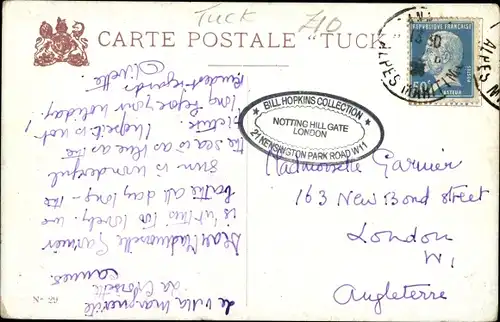 TUCK
710
CARTE POSTALE "TUCK"
REPUBLIQUE FRANÇAISE
ALPES MARITIMES
BILL HOPKINS COLLECTION
NOTTING HILL GATE
LONDON
21 KENSINGTON PARK ROAD W11
Mademoiselle Garnier
163 New Bond Street
London
W1
Angleterre
de Villa Marguerite
la Croisette
Cannes
Dear Mademoiselle Garnier
is too lovely. we
bathe all day long - the
sun is wonderful
the sea is as blue as
picture. I hope it is not
long before your holiday.
Kindest regards
Nº 29